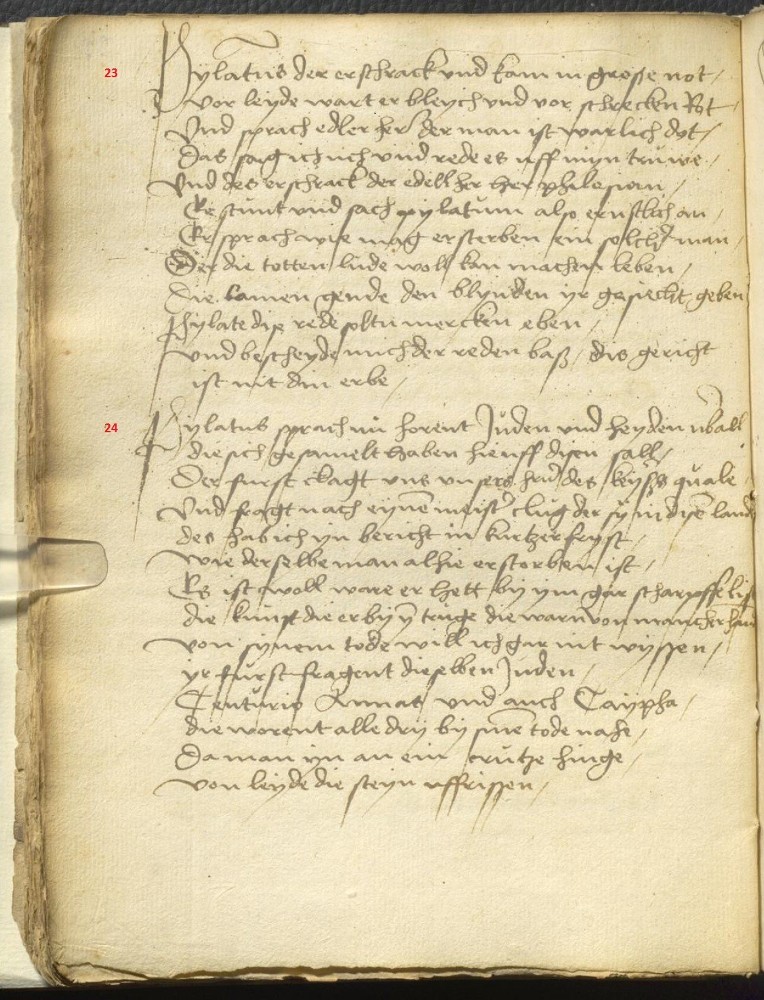 23
Pylatus der erschrack und kam in große not
vor leyde wart er bleych und vor schrecken Rot
Und sprach edler her der man ist warlich dot
Das sag ich uch und rede es uff myn truwe
Und des erschrack der edell her her philesian
Er stunt und sach pylatum also ernstlich an
Er sprach wie mag ersterben ein solch man
Der die totten lude woll kan machen leben
Die lamen gende den blynden yr gesiecht geben
Phylate diß rede soltu mercken eben
und bescheyde mich der reden baß dis gericht
ist nit din erbe
24
Pylatus sprach nu horent Juden und heyden uball
die sich gesamelt haben hie uff disen sall
Der furst clagt uns unsers hern des keysers quale
Und fragt nach eynem meister clug der sy in dysen lande
des hab ich yn bericht in kurtzer fryst
wie der selbe man alhie erstorben ist
Es ist woll ware er hett by ym gar scharpffe list
die kunst die er by ym truge die warn von mancher hand
von synem tode will ich gar nit wyssen
yr furst fragent die selben Juden
Centurio Annas und auch Caypha
die worent alle dry by sine tode nahe
Da man yn an ein crutze hinge
von leyde die steyn uffrissen